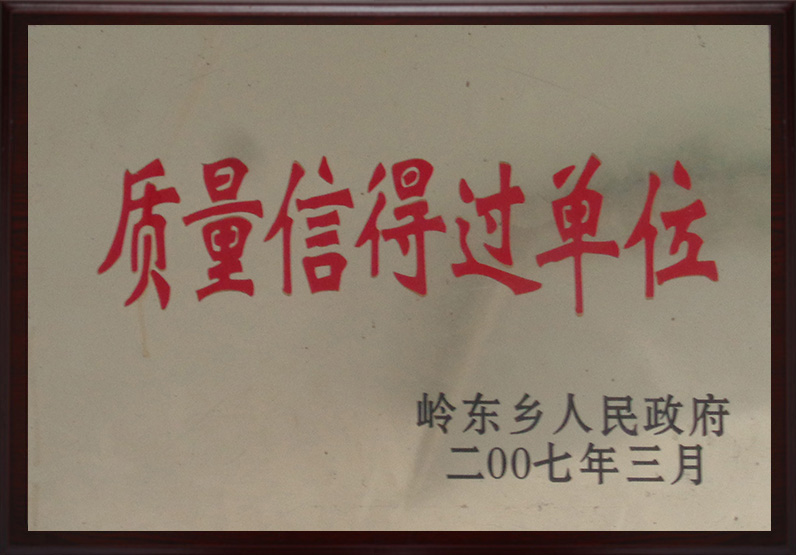 质量信得过单位
岭东乡人民政府
二00七年三月